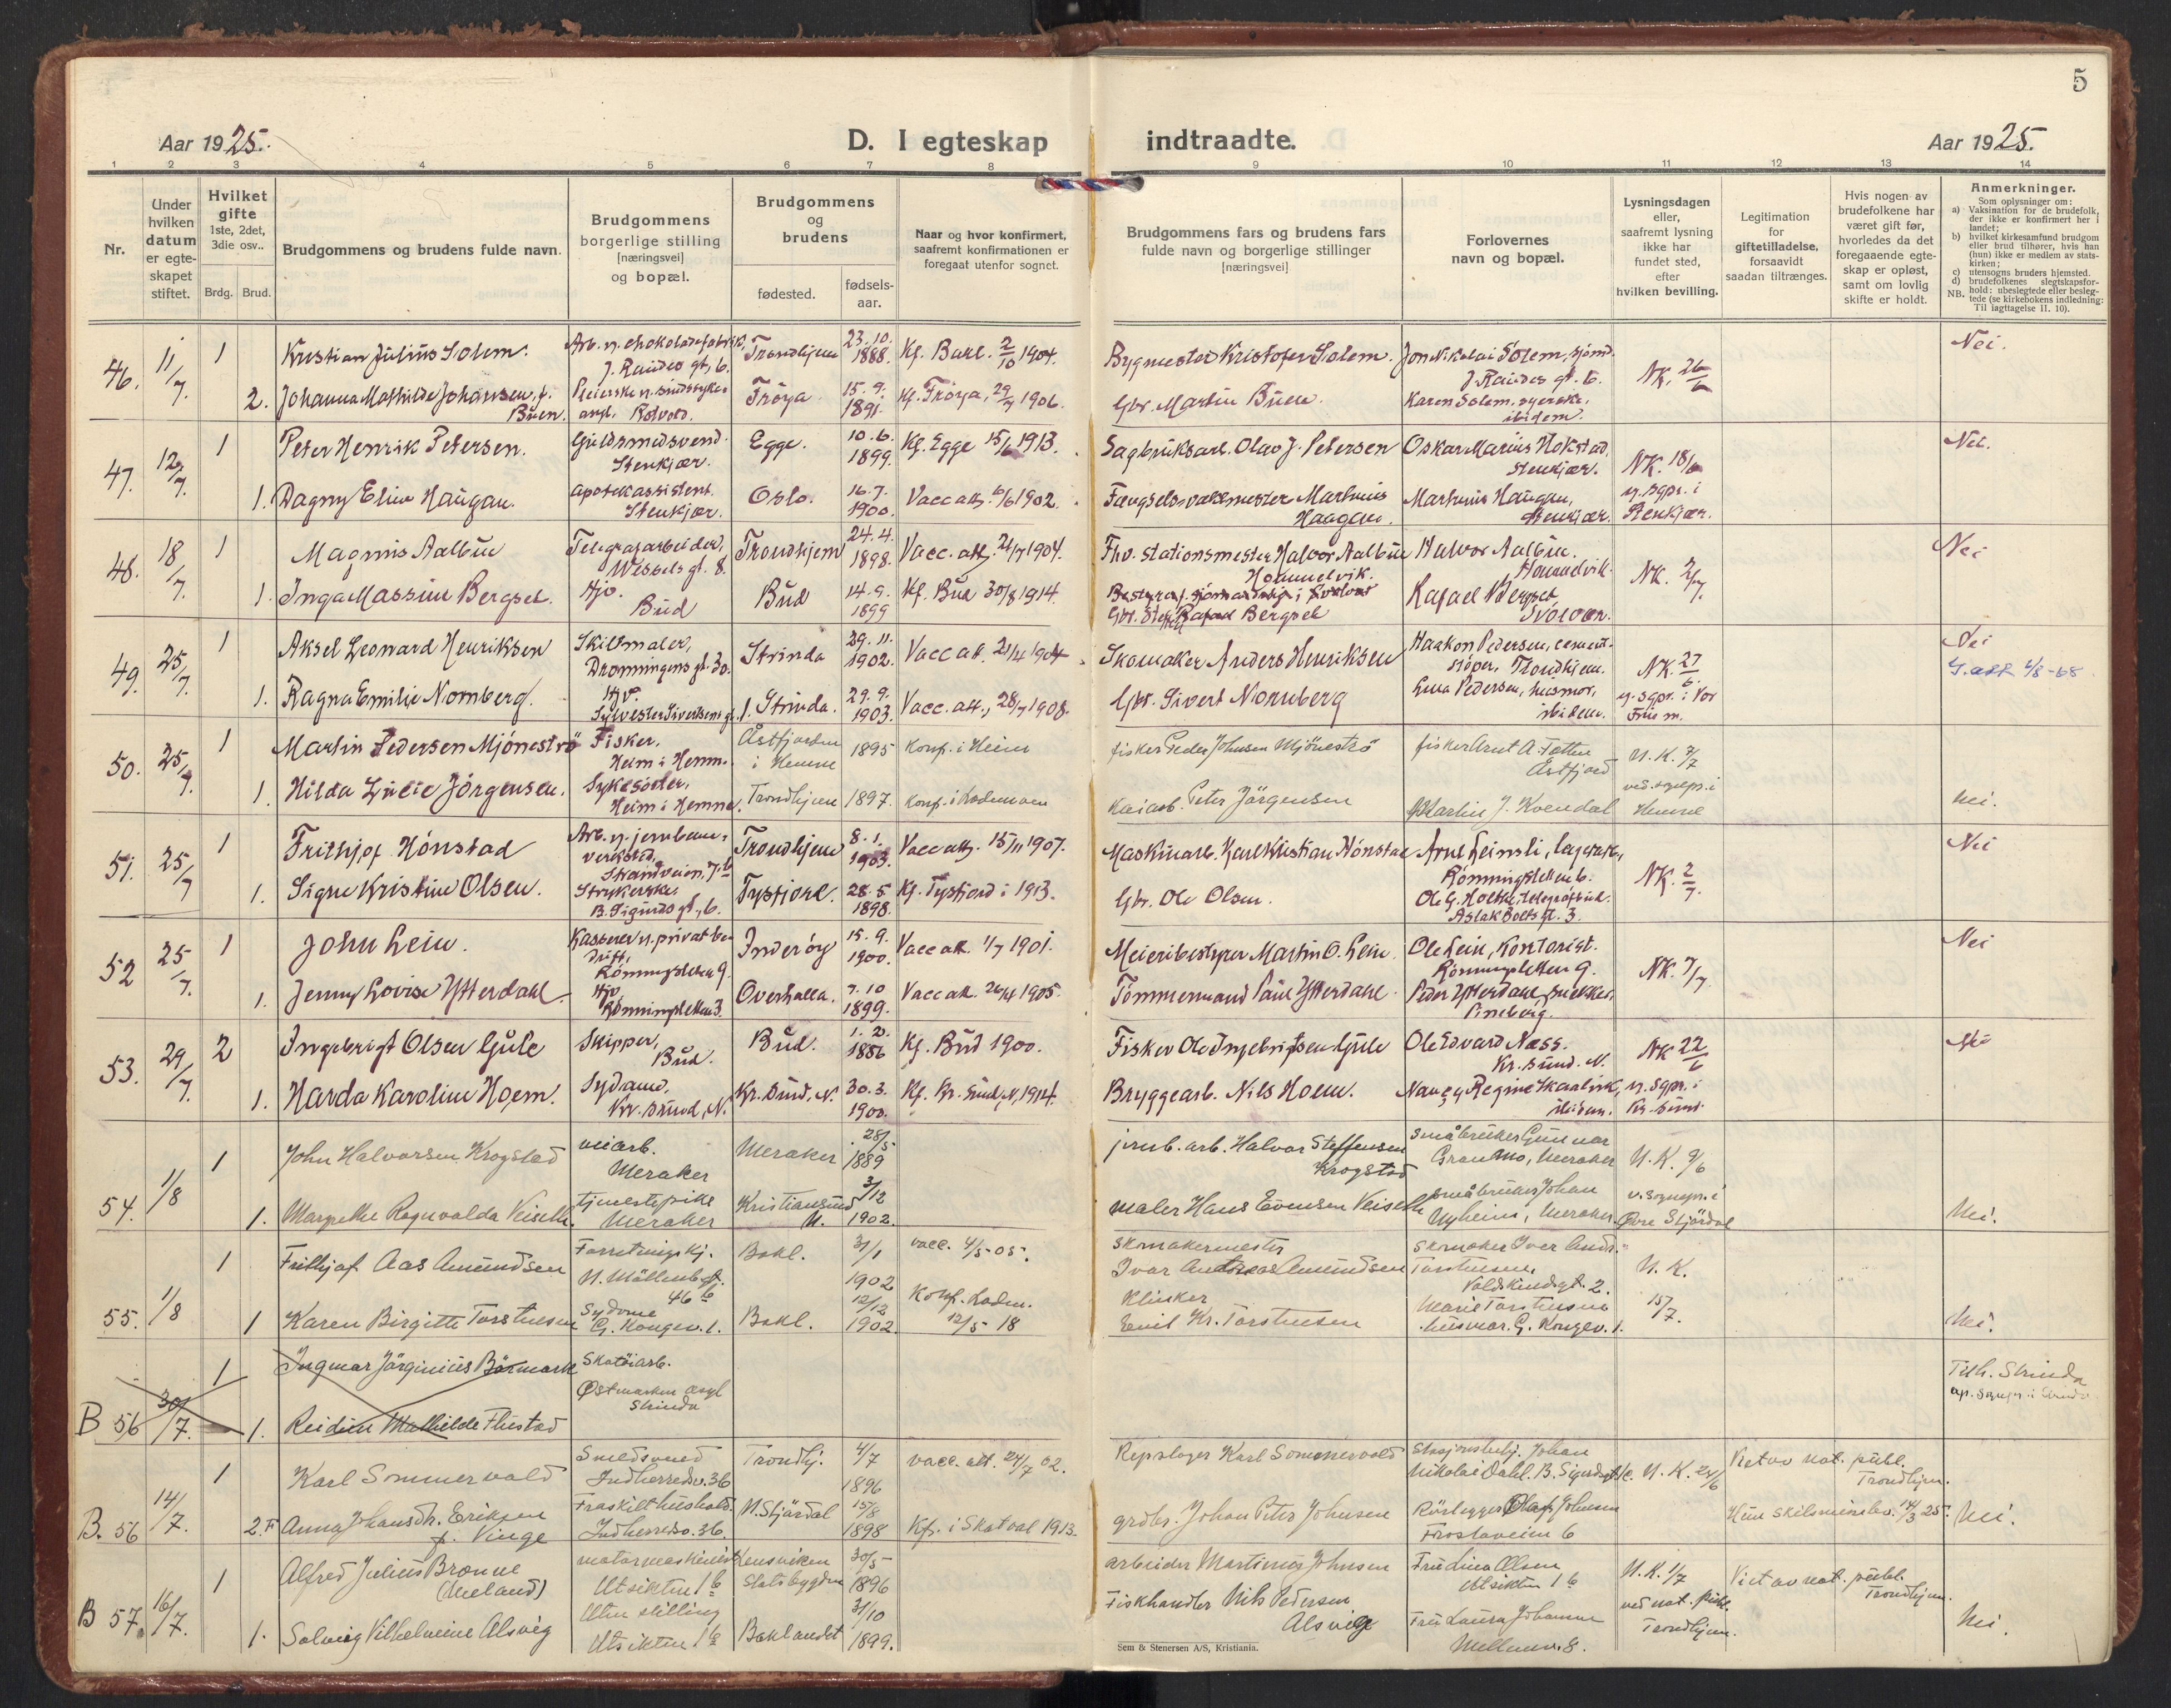 5
Aar 1925.
D. I egteskap indtraadte.
Aar 1925.
1 2 3 4 5 6 7 8 9 10 11 12 13 14
Nr.
Under hvilken datum er egteskapet stiftet.
Hvilket gifte 1ste, 2det, 3die osv..
Brdg. Brud.
Brudgommens og brudens fulde navn.
Brudgommens borgerlige stilling [næringsvei] og bopæl.
Brudgommens og brudens
fødested.
fødsels-aar.
Naar og hvor konfirmert, saafremt konfirmationen er foregaat utenfor sognet.
Brudgommens fars og brudens fars fulde navn og borgerlige stillinger [næringsvei]
Forlovernes navn og bopæl.
Lysningsdagen eller, saafremt lysning ikke har fundet sted, efter hvilken bevilling.
Legitimation for giftetilladelse, forsaavidt saadan tiltrænges.
Hvis nogen av brudefolkene har været gift før, hvorledes da det foregaaende egteskap er opløst, samt om lovlig skifte er holdt.
Anmerkninger.
Som oplysninger om:
a) Vaksination for de brudefolk, der ikke er konfirmert her i landet;
b) hvilket kirkesamfund brudgom eller brud tilhører, hvis han (hun) ikke er medlem av statskirken;
c) utensogns bruders hjemsted.
d) brudefolkenes slegtskapsforhold: ubeslegtede eller beslegtede (se kirkebokens indledning:
NB. Til iagttagelse II. 10).
46. 11/7. 1 Kristian Julius Solem. Arb. v. chokoladefabrik, J. Raudes gt. 6. Trondhjem 23.10. 1888. Kf. Bakl. 2/10 1904. Bygmester Kristofer Solem. Jon Nikolai Solem, sjømd. J. Raudes gt. 6. NK. 26/6 Nei.
2. Johanna Mathilde Johansen, f. Buen. Pleierske v. sindssykeasyl. Rotvold. Frøya 15.9. 1891. Kf. Frøya, 29/7 1906. Gbr. Martin Buen. Karen Solem, syerske, ibidem.
47. 12/7. 1 Peter Henrik Petersen. Guldsmedsvend. Stenkjær. Egge. 10.6. 1899. Kf. Egge 15/6 1913. Sagbruksarb. Olav J. Petersen Oskar Marius Hokstad, Stenkjær. NK. 18/6 v. sgpr. i Stenkjær. Nei.
1. Dagny Eline Haugan. Apotekassistent. Stenkjær. Oslo. 16.7. 1900. Vacc att. 6/6 1902. Fængselsvaktmester Martinius Haagan. Martinius Haugan, Stenkjær.
48. 18/7. 1 Magnus Aalbu Telegrafarbeider, Wessels gt. 8. Trondhjem 24.4. 1898. Vacc. att. 21/7 1904. Fhv. stationsmester Halvor Aalbu Hommelvik. Halvor Aalbu. Hommelvik. NK. 2/7. Nei
1. Inga Massine Bergset. Hjv. Bud Bud 14.9. 1899 Kf. Bud 30/8 1914. Gbr. Bergset Rafael Bergset Svolvær.
49. 25/7. 1 Aksel Leonard Henriksen Skiltmaler, Dronningens gt. 30. Strinda 29.11. 1902. Vacc att. 21/4 1904 Skomaker Anders Henriksen Haakon Pedersen, cementstøper, Trondhjem. NK. 27/6. v. sgpr. i Vor Frue m. Nei
1. Ragna Emilie Nornberg. Hjv. Sylvester Sivertsens gt. 1. Strinda. 29.9. 1903. Vacc. att., 28/7 1908. Gbr. Sivert Nornberg Lina Pedersen, husmor, ibidem. 4/8-68
50. 25/7. 1 Martin Pedersen Mjønestrø Fisker, Heim i Hemn. Åstfjorden i Hemne 1895 Konf. i Heim fisker Peder Johnsen Mjønestrø fisker Arnt A. Føtten Åstfjord N.K. 7/7 ved sognepr. i Hemne
1. Hilda Lydie Jørgensen. Sykesøster, Heim i Hemne. Trondhjem 1897. Konf. i Lademoen Kaiarb. Peter Jørgensen Martin J. Kvendal Nei.
51. 25/7 1 Frithjof Hønstad Arb. v. jernbaneverksted, Strandveien, 7 b Trondhjem 8.1. 1903. Vacc att. 15/11 1907. Maskinarb. Karl Kristian Hønstad Arne Leinsli, lagerarb., Rønningsletten 6. NK. 2/7. Nei
1. Signe Kristine Olsen. Strykerske. B. Sigurds gt., 6. Tysfjord. 28.5 1898. Kf. Tysfjord i 1913. Gbr. Ole Olsen. Ole G. Holthe, Aslak Bolts gt. 3.
52 25/7. 1 John Lein. Kasserer v. privat bedrift, Rønningsletten 9. Inderøy 15.9. 1900. Vacc att. 1/7 1901. Meieribestyrer Martin O. Lein. Ole Lein, Kontorist. Rønningsletten 9. NK. 7/7. Nei
1. Jenny Lovise Ytterdahl. Hjv Rønningsletten 3. Overhalla. 7.10 1899. Vacc att. 26/4 1905. Tømmermand Paul Ytterdahl. Peder Ytterdahl, snekker, Pineberg.
53. 29/7. 2 Ingebrigt Olsen Gule Skipper, Bud. Bud. 1.2. 1886 Kf. Bud 1900. Fisker Ole Ingebrigtsen Gule Ole Edvard Næss. Kr. sund. N. NK 22/6 v. sgpr. i Kr. sund. Nei
1. Harda Karoline Hoem. Sydame, Kr. sund, N. Kr. sund, N. 30.3. 1900. Kf. Kr. Sund, N. 1914. Bryggearb. Nils Hoem. Nancy Regine Skaalvik, ibidem.
54. 1/8 1 John Halvorsen Krogstad veiarb. Meraker Meraker 28/5. 1889 jernb. arb. Halvor Steffensen Krogstad småbruker Gunnar Granmo, Meraker N.K. 9/6 v. sognepr. i Øvre Stjørdal
1. Margrethe Ragnvalda Veiseth. tjenestepike Meraker Kristiansund N. 3/12 1902. maler Hans Evensen Veiseth småbruker Johan Nyheim, Meraker. Nei.
55. 1/8 1 Frithjof Aas Amundsen Forretningsbtj. N. Møllenb. gt. 46 b Bakl. 31/1 1902 vacc. 4/5-05. Skomakermester Ivar Andreas Amundsen Skomaker Iver Andr. Torstensen, Voldskindsgt. 2. N.K. 15/7.
1 Karen Birgitte Torstensen Sydame G. Kongev. 1. Bakl. 12/12 1902. Konf. Laden. 12/5 18 Klinker Emil Kr. Torstensen Marie Torstensen husmor. G. Kongev. 1. Nei.
B 56 30/7. 1 Ingmar Jørginius Børmark Skotøiarb. Østmarken asyl Strinda Tilh. Strinda
1. Reidun Mathilde Flustad
B. 56 14/7. 1 Karl Sommervold Smedsvend Indherredsv. 36 Trondhj. 4/7 1896 vacc. att. 24/7 02. Repslager Karl Sommervold Stasjonsbetj. Johan Nikolai Dahl. B. Sigurdsgt. N.K. 24/6 Viet av not. publ. Trondhjem.
2. F Anna Johansdr. Eriksen f. Vinge Fraskilt hushold. Indherredsv. 36. N. Stjørdal 15/8 1898 Kf. i Skatval 1913. grdbr. Johan Peter Johnsen Rørlegger Olaf Johnsen Frostaveien 6 Hun skilsmissebev. 14/3 25. Nei.
B 57. 16/7. 1 Alfred Julius Brønne (Meland) motormaskinist Utsikten 1 b Lensviken Statsbygden 30/5 1896 arbeider Martinus Johnsen Fru Lina Olsen Utsikten 1 b N.K. 1/7 ved not. publ. Trondhjem. Viet av not. publ. Trondhjem.
1. Solveig Vilhelmine Alsvig Uten stilling Utsikten 1 b Baklandet 31/10 1899. Fiskhandler Nils Pedersen Alsvig Fru Laura Johansen Mellemv. 8. Nei.
Sem & Stenersen A/S, Kristiania.